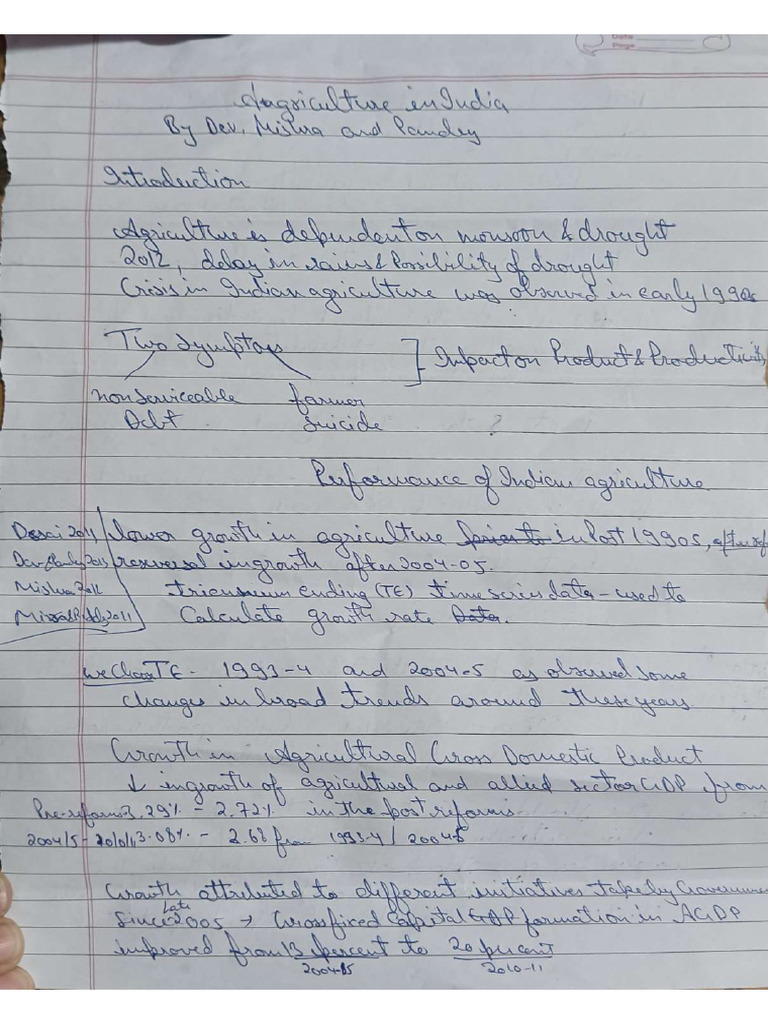 Date
Page
Agriculture in India
By Dev, Mishra and Pandey
Introduction
Agriculture is dependent on monsoon & drought
2012, delay in rains & Possibility of drought
Crisis in Indian agriculture was observed in early 1990s
Two Symptoms ] Impact on Product & Productivity
non Serviceable farmer
Debt Suicide ?
Performance of Indian agriculture
Desai 2011 lower growth in agriculture in Post 1990s,
reversal in growth after 2004-05.
Mishra 2012 triennium ending (TE) time series data - used to
2011 Calculate growth rate Data.
TE - 1993-4 and 2004-5 as observed some
changes in broad trends around these years
Growth in Agricultural Gross Domestic Product
↓ in growth of agricultural and allied sector GDP from
Pre-reforms 3.29% - 2.72% in the post reforms
2004/5 - 2010/11 3.08% - 2.68 from 1993-4 / 2004-5
Growth attributed to different initiatives take by Government
Since late 2005 → Gross fixed Capital formation in AGDP
improved from 13 percent to 20 percent
2004-05 2010-11